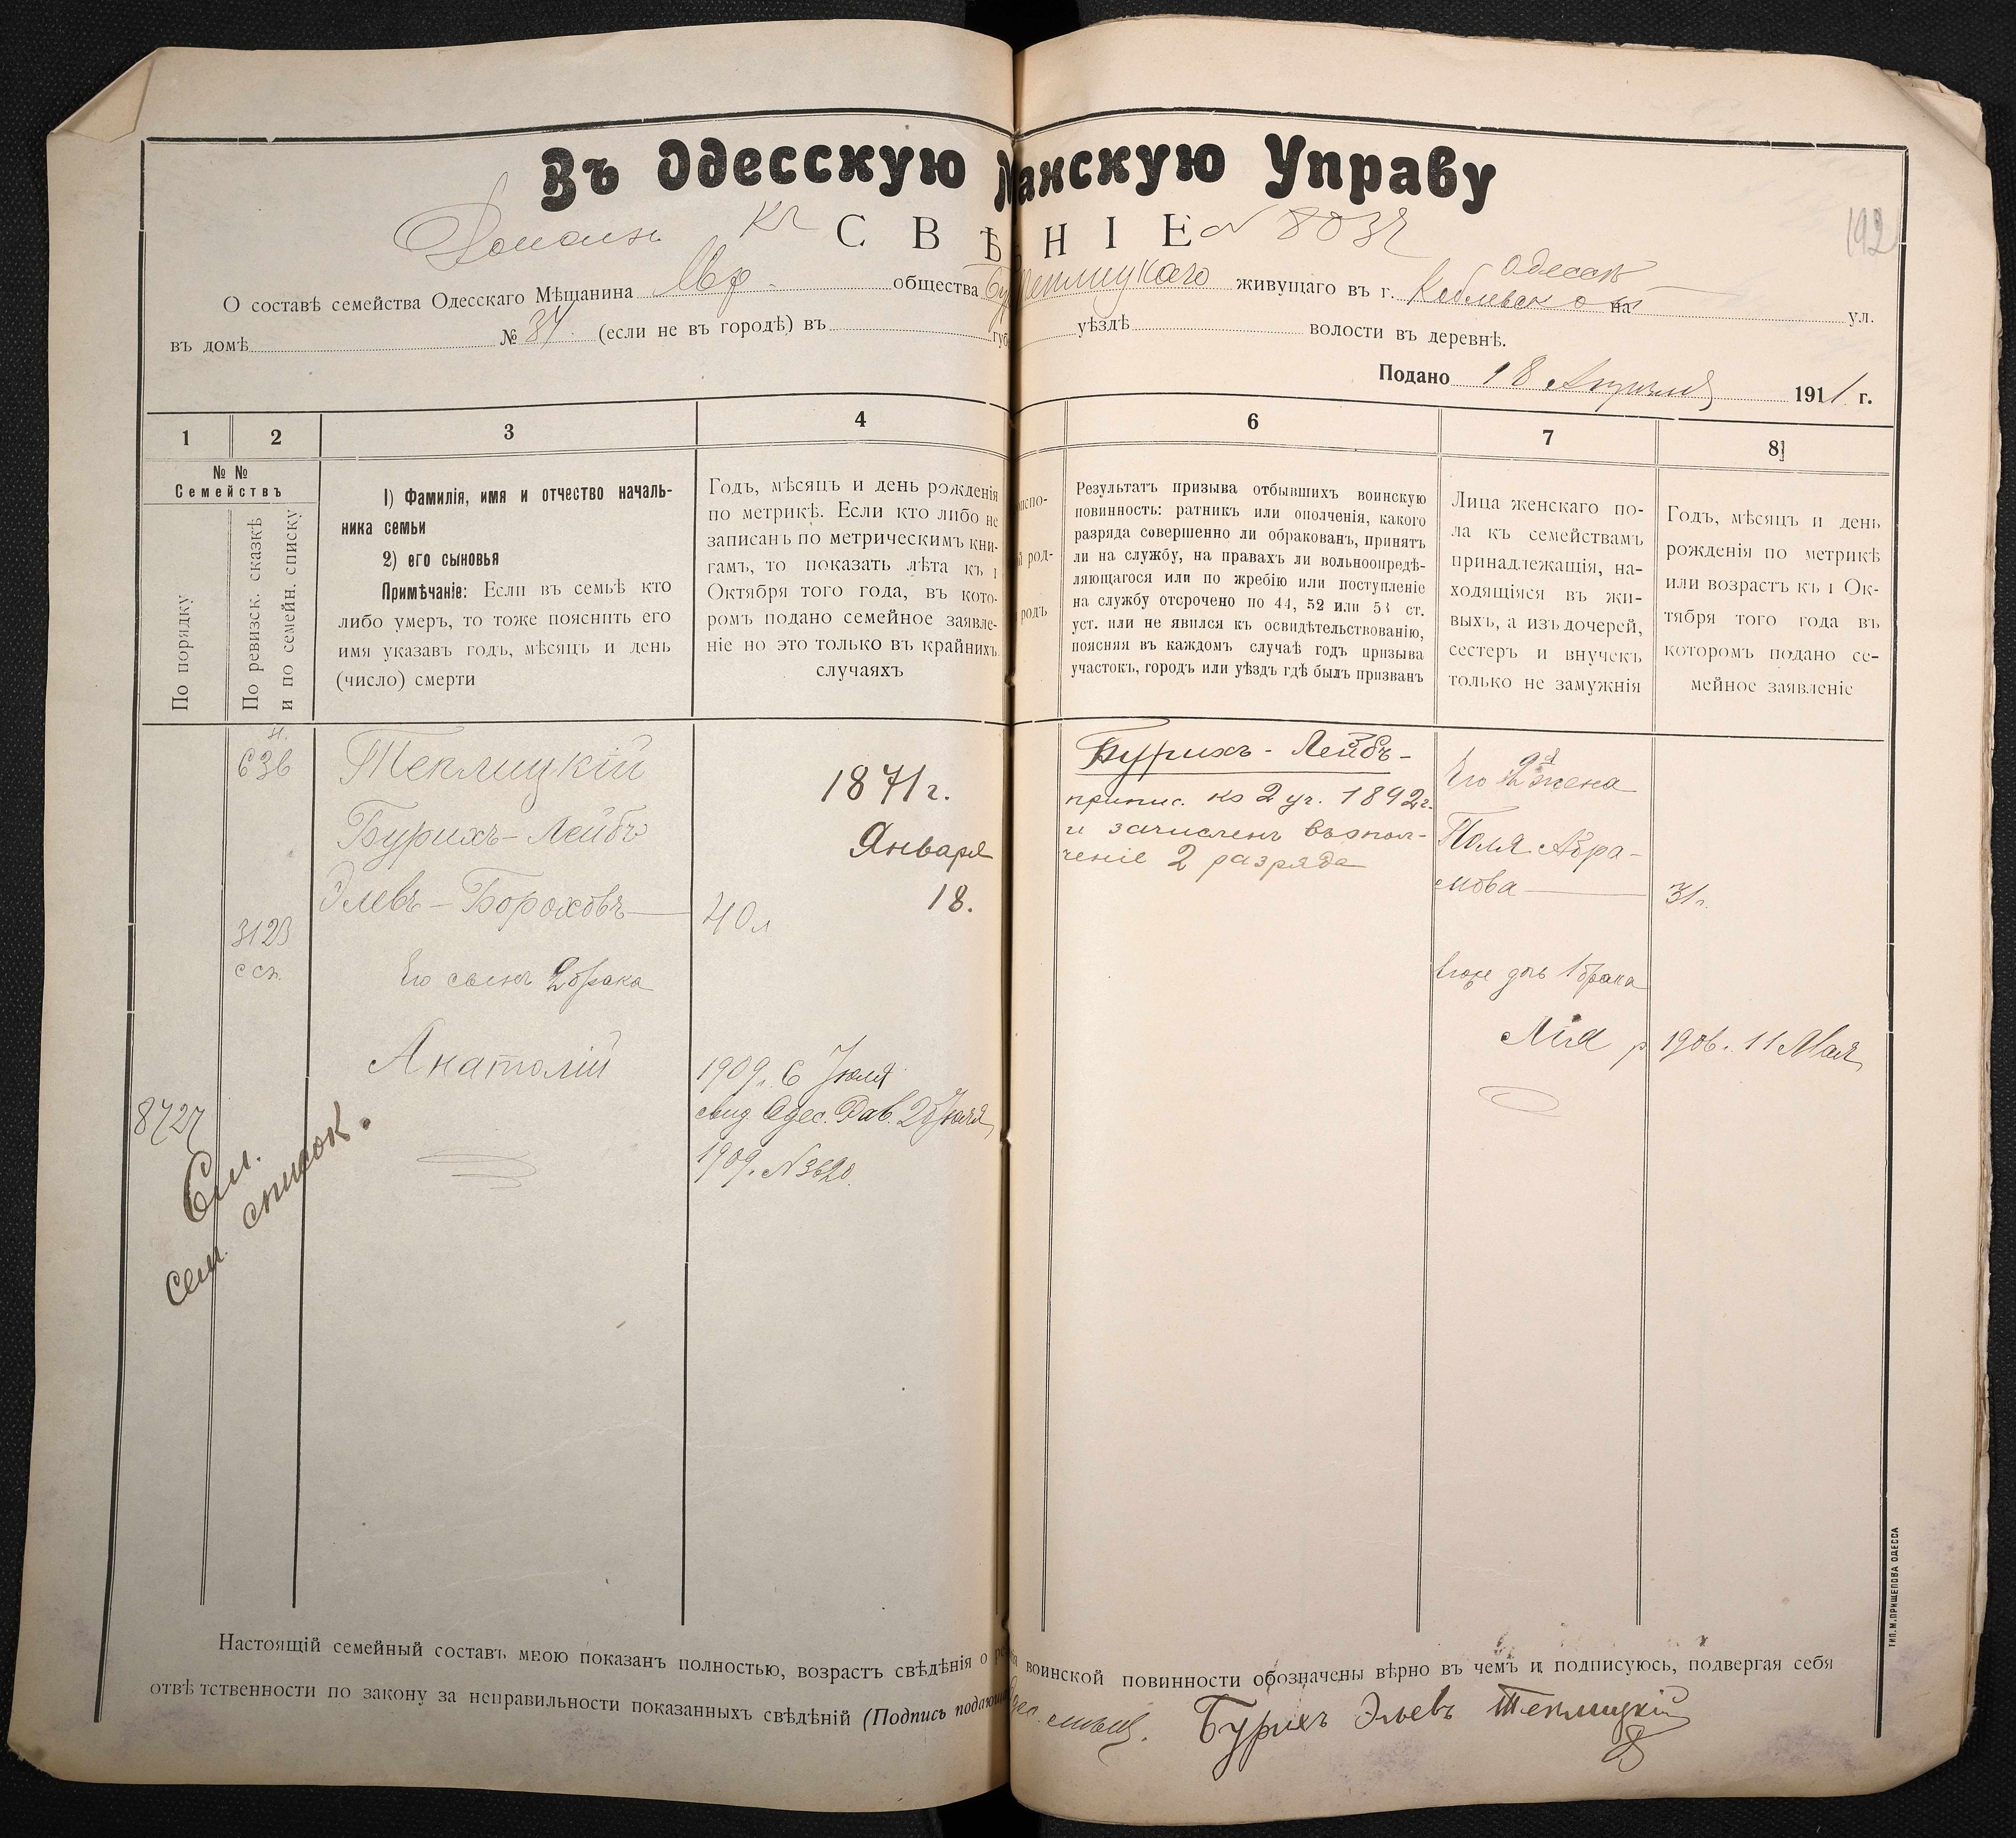 Въ Одесскую
анскую Управу
192
СВѢ НІЕ
О составѣ семейства Одесскаго Мѣщанина Евр. общества Бур Теплицкаго живущаго въ г. Одессѣ на Коблевской ул.
въ домѣ № 37 (если не въ городѣ) въ губ уѣздѣ волости въ деревнѣ.
Подано 18 Апрѣля 1911 г.
1
2
3
4
6
7
8
№ №
Семействъ
По порядку
По ревизск. сказкѣ
и по семейн. списку
1) Фамилія, имя и отчество началь-
ника семьи
2) его сыновья
Примѣчаніе: Если въ семьѣ кто
либо умеръ, то тоже пояснить его
имя указавъ годъ, мѣсяцъ и день
(число) смерти
Годъ, мѣсяцъ и день рожденія
по метрикѣ. Если кто либо не
записанъ по метрическимъ кни-
гамъ, то показать лѣта къ 1
Октября того года, въ кото-
ромъ подано семейное заявле-
ніе но это только въ крайнихъ
случаяхъ
испо-
род-
родъ
Результатъ призыва отбывшихъ воинскую
повинность: ратникъ или ополченія, какого
разряда совершенно ли обракованъ, принятъ
ли на службу, на правахъ ли вольноопредѣ-
ляющагося или по жребію или поступленіе
на службу отсрочено по 44, 52 или 53 ст.
уст. или не явился къ освидѣтельствованію,
поясняя въ каждомъ случаѣ годъ призыва
участокъ, городъ или уѣздъ гдѣ былъ призванъ
Лица женскаго по-
ла къ семействамъ
принадлежащія, на-
ходящіяся въ жи-
выхъ, а изъ дочерей,
сестеръ и внучекъ
только не замужнія
Годъ, мѣсяцъ и день
рожденія по метрикѣ
или возрастъ къ 1 Ок-
тября того года въ
которомъ подано се-
мейное заявленіе
636
Теплицкій
Бурихъ-Лейбъ
Элевъ-Бороховъ
1871 г.
Января
18.
40 л
3123
Его сынъ 2 брака
Анатолій
1909. 6 Іюля
1909. N 3620.
8727
См.
сем. список.
Бурихъ-Лейбъ-
припис. ко 2 уч. 1892 г.
и зачисленъ въ опол-
ченіе 2 разряда
Его 2я жена
Поля Абра-
мова
31 г.
Его же дчь 1 брака
Лія р.
1906. 11 Мая
Настоящій семейный составъ мною показанъ полностью, возрастъ свѣдѣнія о воинской повинности обозначены вѣрно въ чемъ и подписуюсь, подвергая себя
отвѣтственности по закону за неправильности показанныхъ свѣдѣній (Подпись подающ
Бурихъ Эльевъ Теплицкій
ТИП. М. ПРИЩЕПОВА ОДЕССА